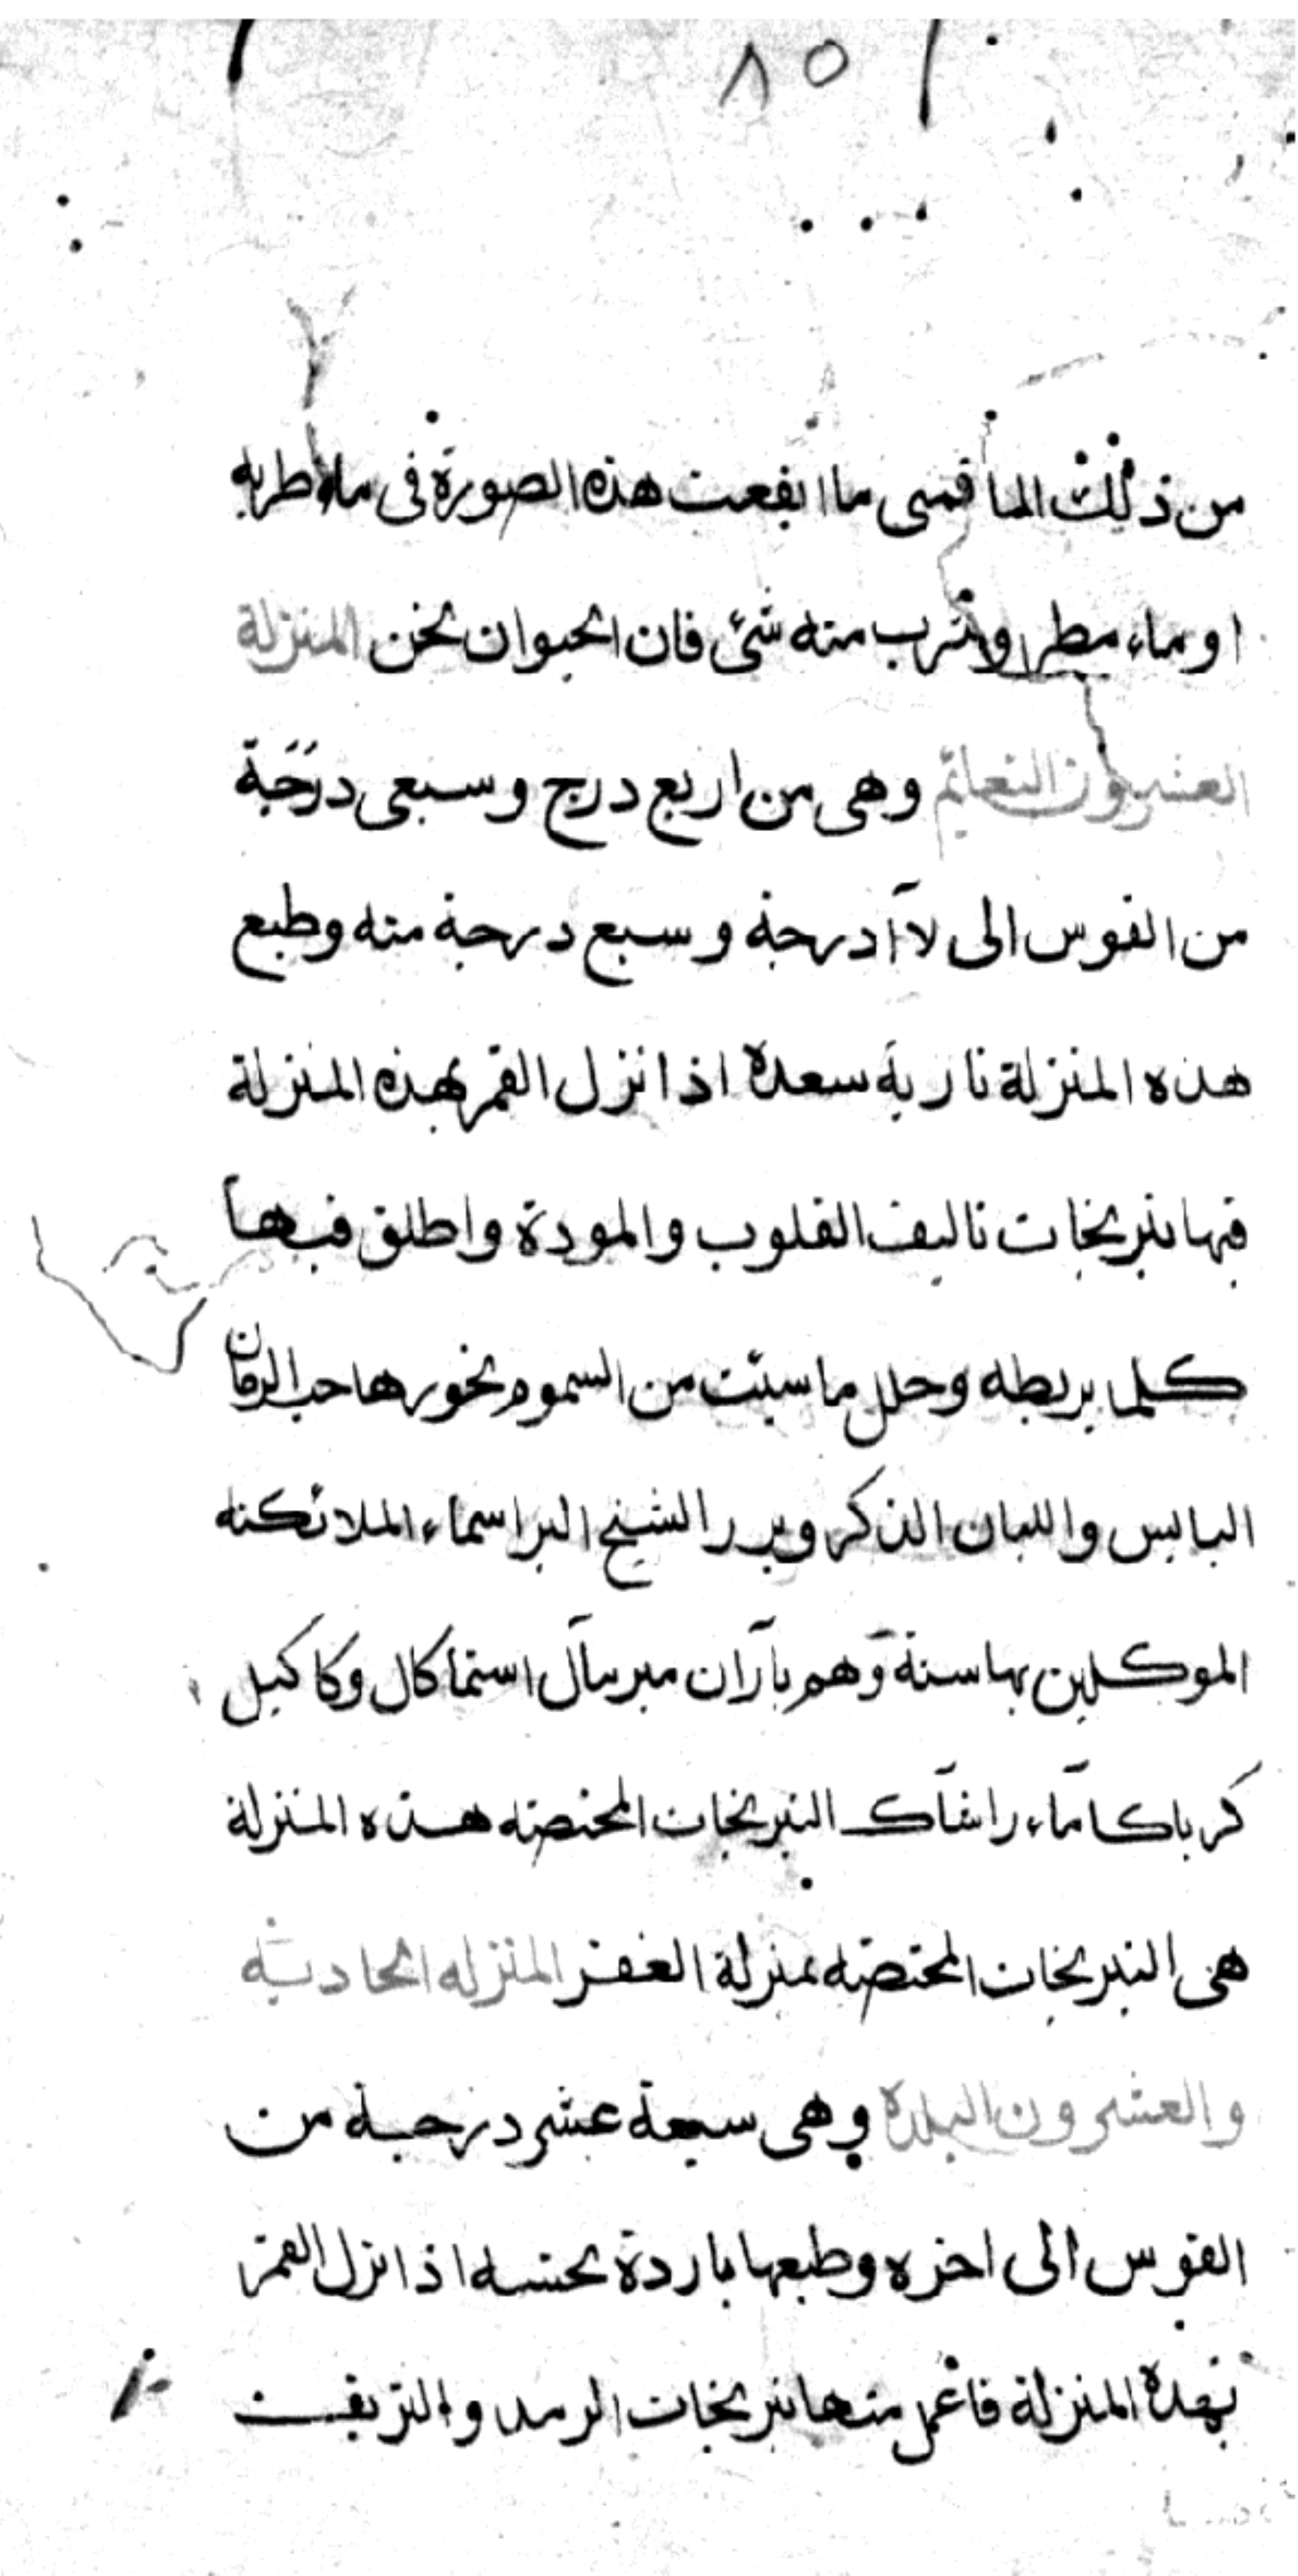 ٨٥
من ذلك الما فمتى ما انفعت هذه الصورة فى ماء طريه
او ماء مطر وشرب منه شئ فان الحيوان يخن المنزلة
العشرون النعايم وهى من اربع درج وسبعى درجة
من القوس الى لا درجة وسبع درجة منه وطبع
هذه المنزلة نارية سعدة اذا نزل القمر بهذه المنزلة
فيها نيرنجات تاليف القلوب والمودة واطلق فيها
كلما بربطه وحلل ما سيئت من السموم بخورها حب الرمان
اليابس واللبان الذكر وبرر الشيخ البر اسماء الملائكته
الموكلين بها ستة وهم باران ميرسال استماكال وكاكيل
كرباكاماء راشاك النيرنجات المختصه هذه المنزلة
هى النيرنجات المختصه بمنزلة الغفر المنزله الحادية
والعشرون البلدة وهى سبعة عشر درجة من
القوس الى اخره وطبعها باردة نحسه اذا نزل القمر
بهذه المنزلة فاعمل منها نيرنجات الرمد والنزيف